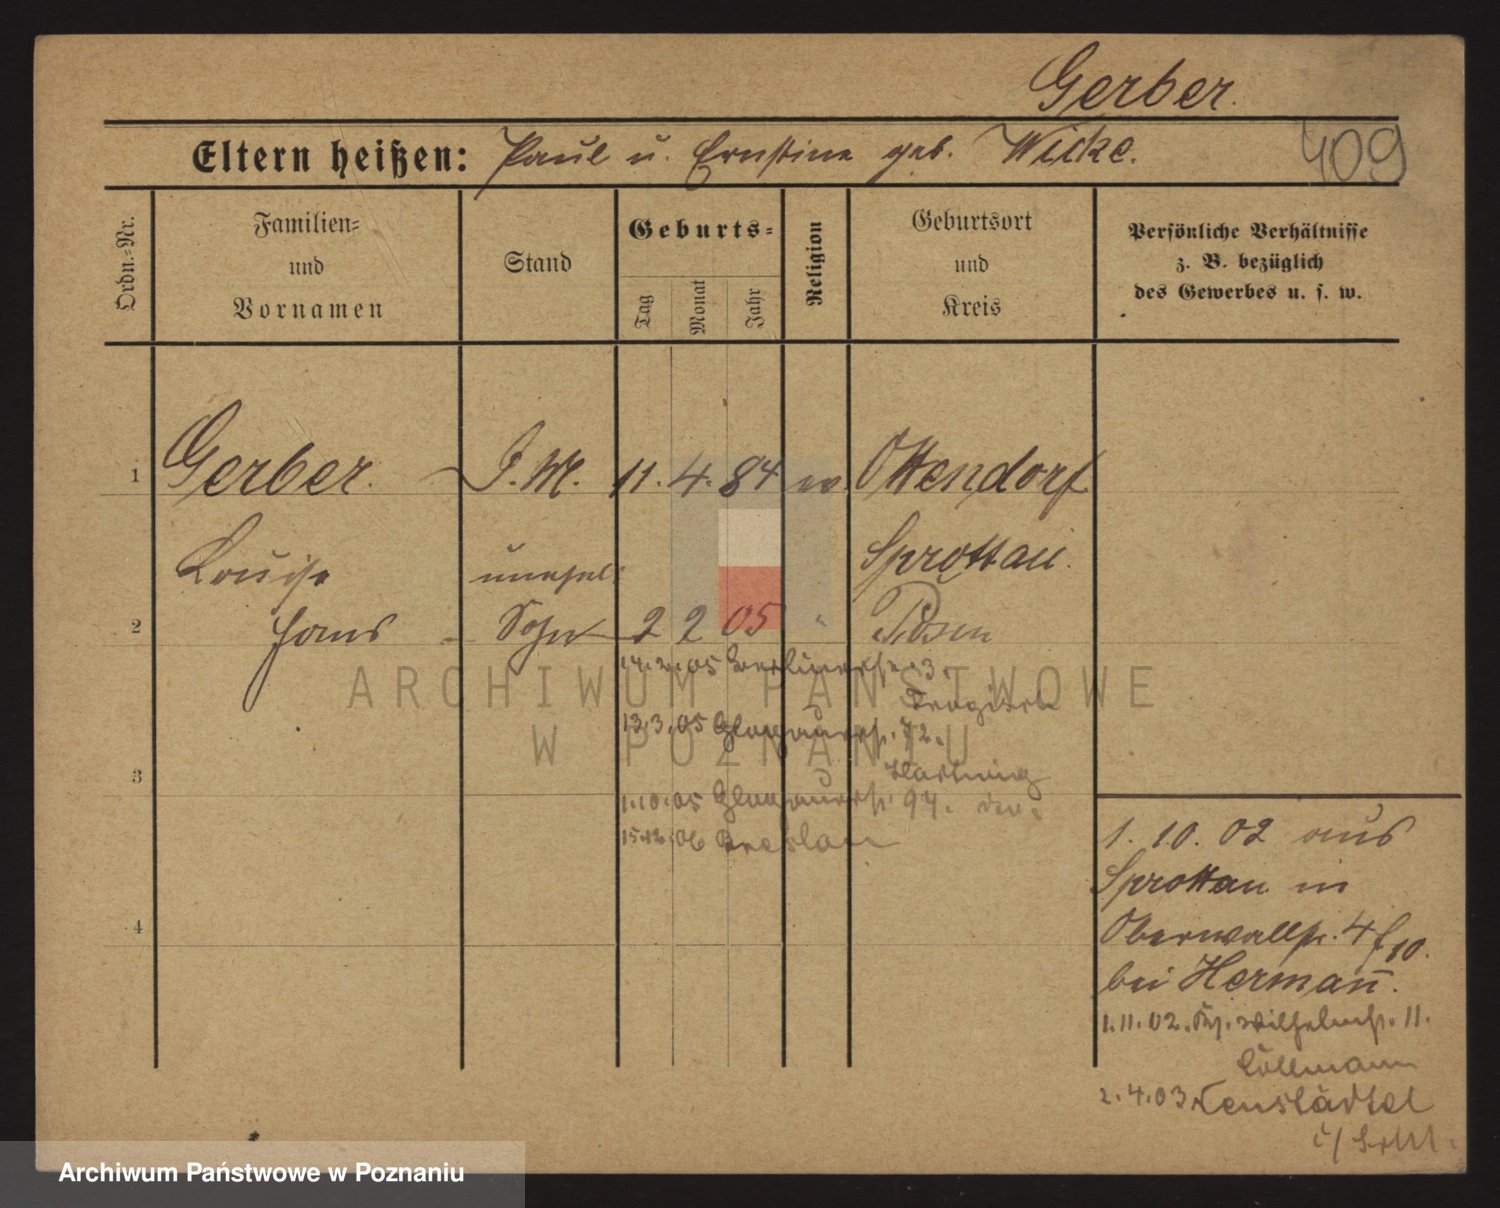 Gerber.
Eltern heißen: Paul u. Ernstine geb. Wicke.
409
Ordn.=Nr.
Familien=
und
Vornamen
Stand
Geburts=
Tag
Monat
Jahr
Religion
Geburtsort
und
Kreis
Persönliche Verhältnisse
z. B. bezüglich
des Gewerbes u. s. w.
1 Gerber. 11. 4. 84 ev. Ottendorf
Louise unehel. Sprottau.
2 Hans Sohn 2 2 05 " Posen
14.2.05 Berlinerstr. 3.
13.3.05 Glogauerstr. 72.
3 Hartwig
1.10.05 Glogauerstr. 94.
15.12.06 Breslau
4
1. 10. 02 aus
Sprottau in
Oberwallstr. 4
bei Hermann.
1.11.02. Wilhelmstr. 11.
Cöllmann
2.4.03 Neustädtel
ARCHIWUM PAŃSTWOWE
W POZNANIU
Archiwum Państwowe w Poznaniu